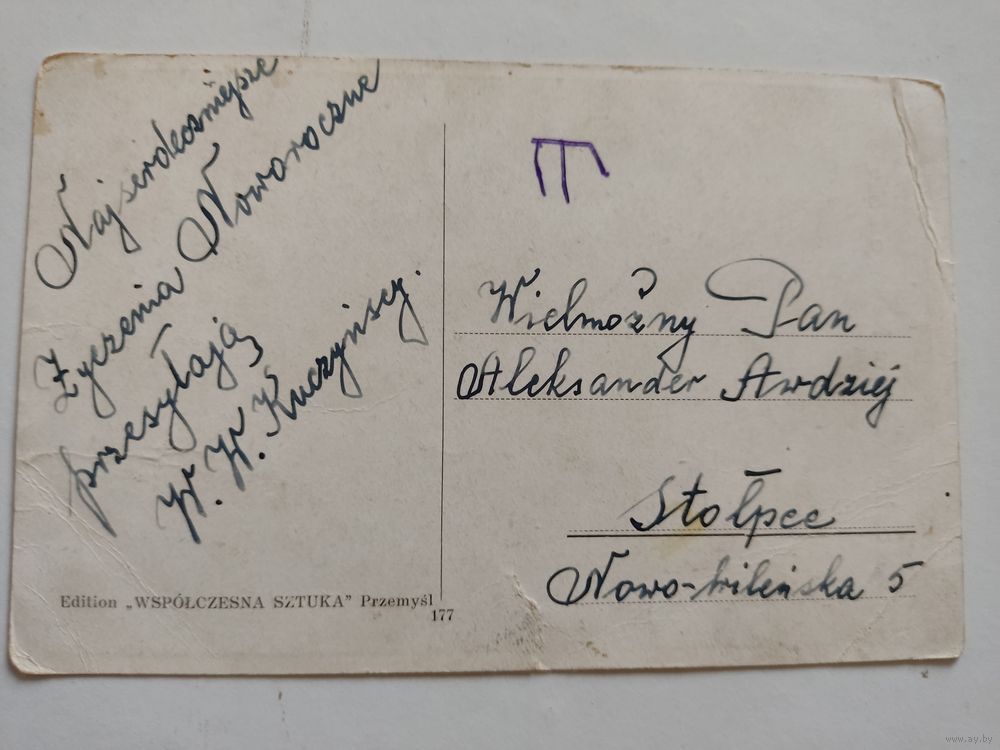 Najserdeczniejsze
Życzenia Noworoczne
przesyłają
W. W. Kuczyńscy.
Wielmożny Pan
Aleksander Awdziej
Stołpce
Nowo-wileńska 5
Edition „WSPÓŁCZESNA SZTUKA” Przemyśl
177
www.ay.by